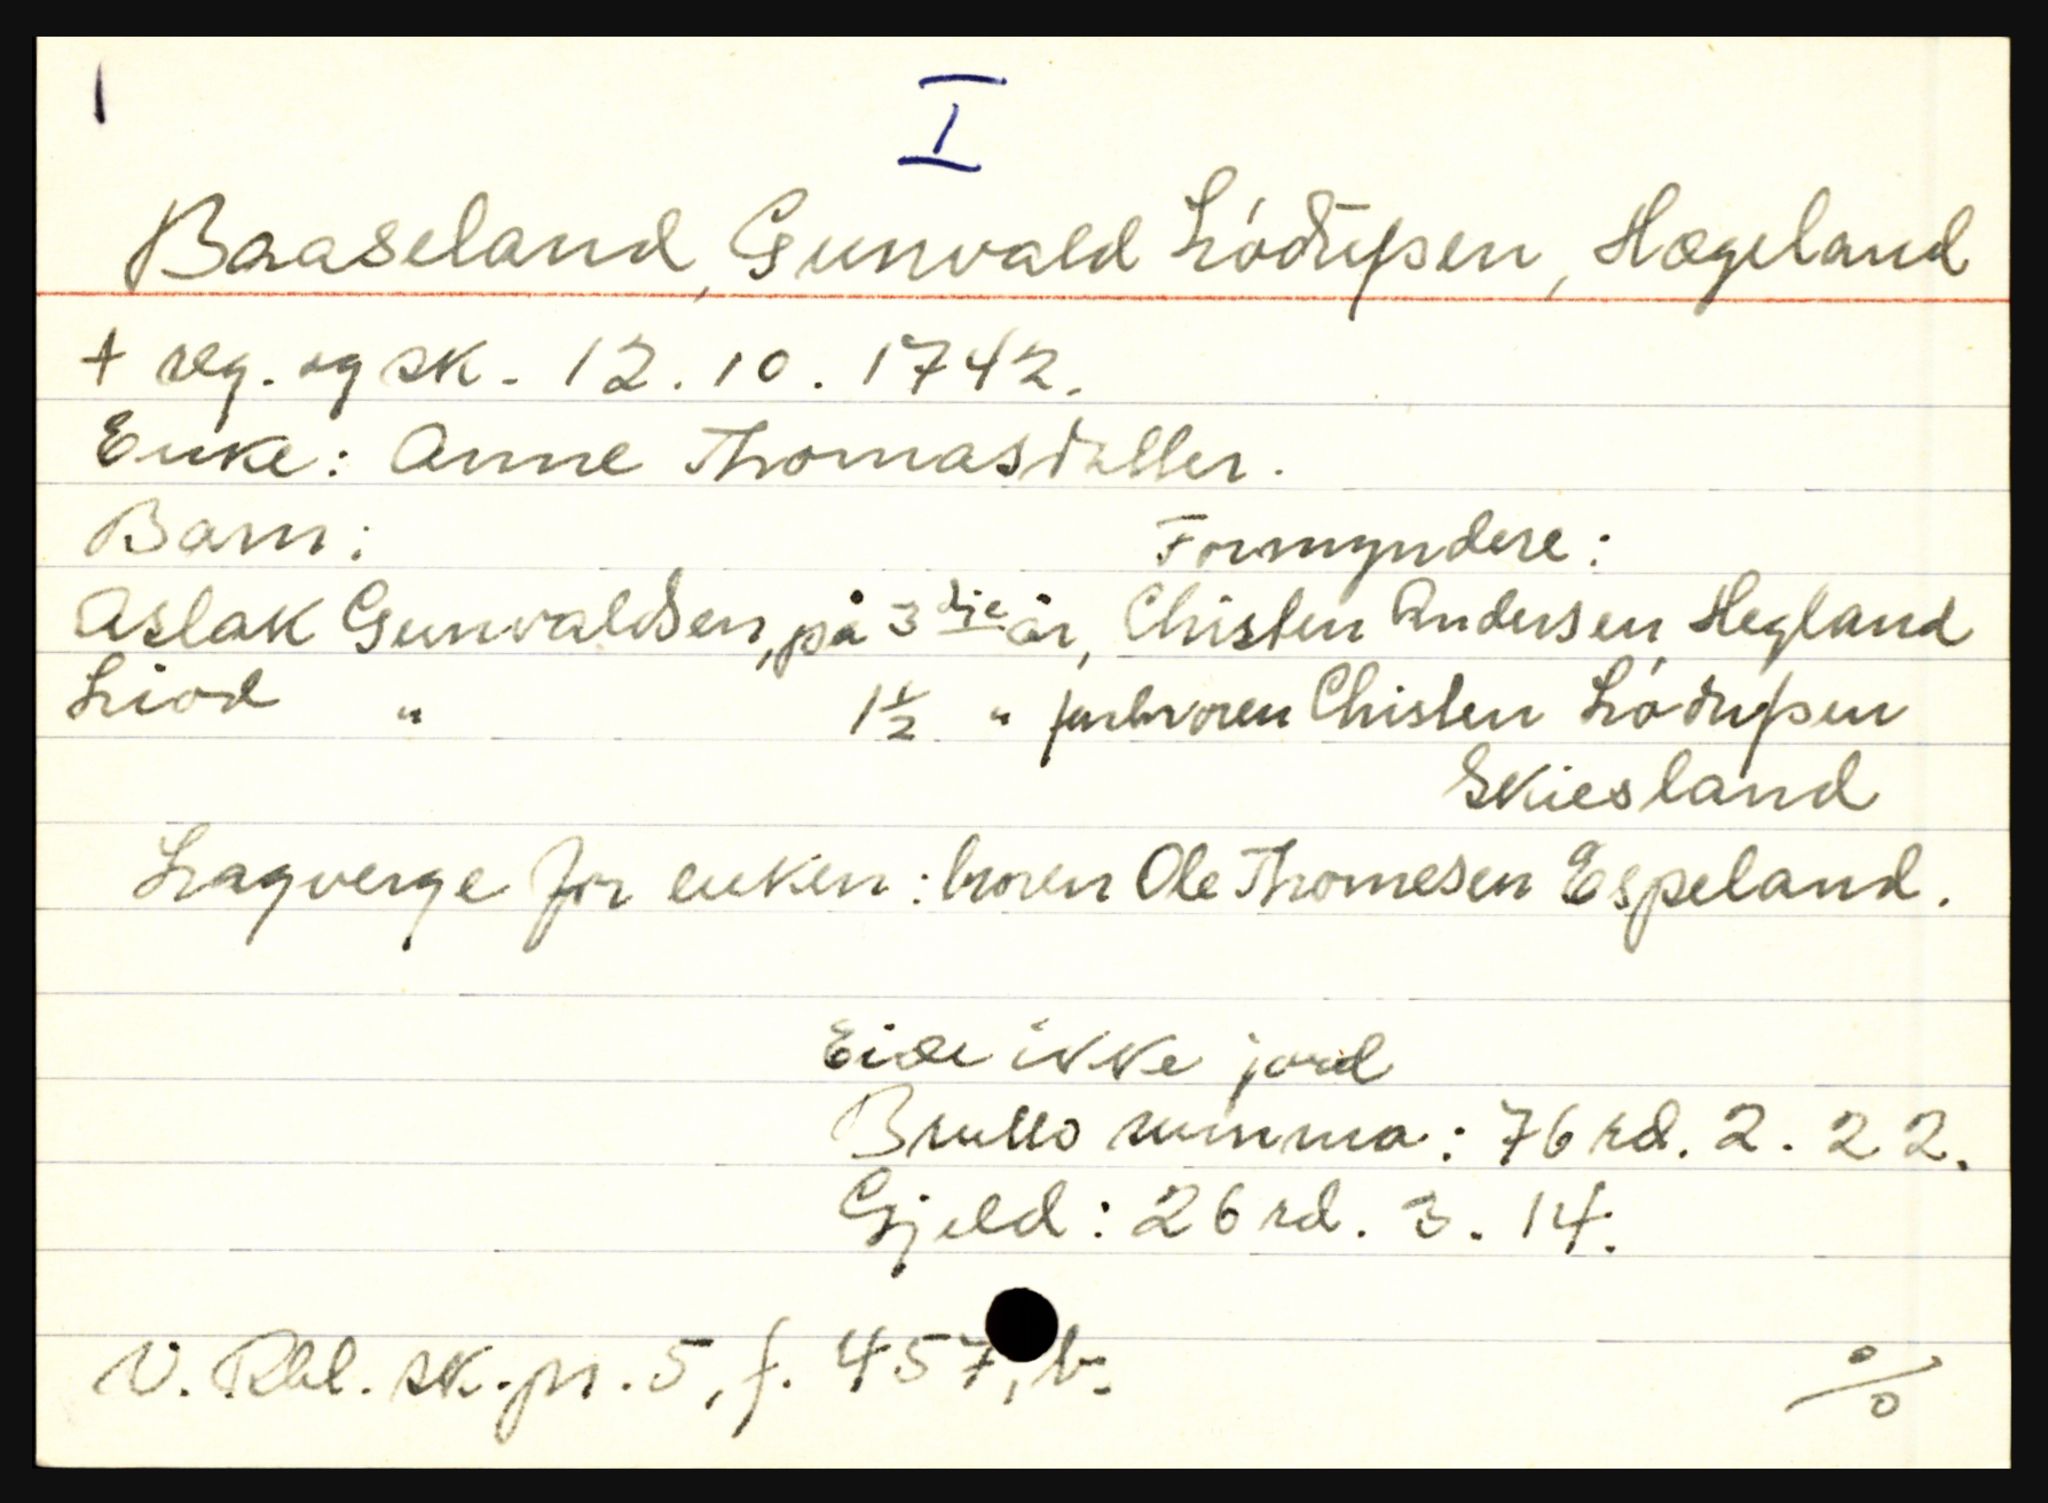 I
Baaseland, Gunvald Liódufsen, Hægeland
+ reg. og sk. 12.10.1742.
Enke: Anne Thomasdatter.
Barn: Formyndere:
Aslak Gunvaldsen, på 3die år, Christen Andersen Hegland
Liod " 1½ " farbroren Christen Liódufsen
Skiesland
Lagverge for enken: broren Ole Thomesen Espeland.
Eide ikke jord
Brutto summa: 76 rd. 2. 22.
Gjeld: 26 rd. 3. 14.
V. Rbl. sk.pr. 5, f. 457, b.